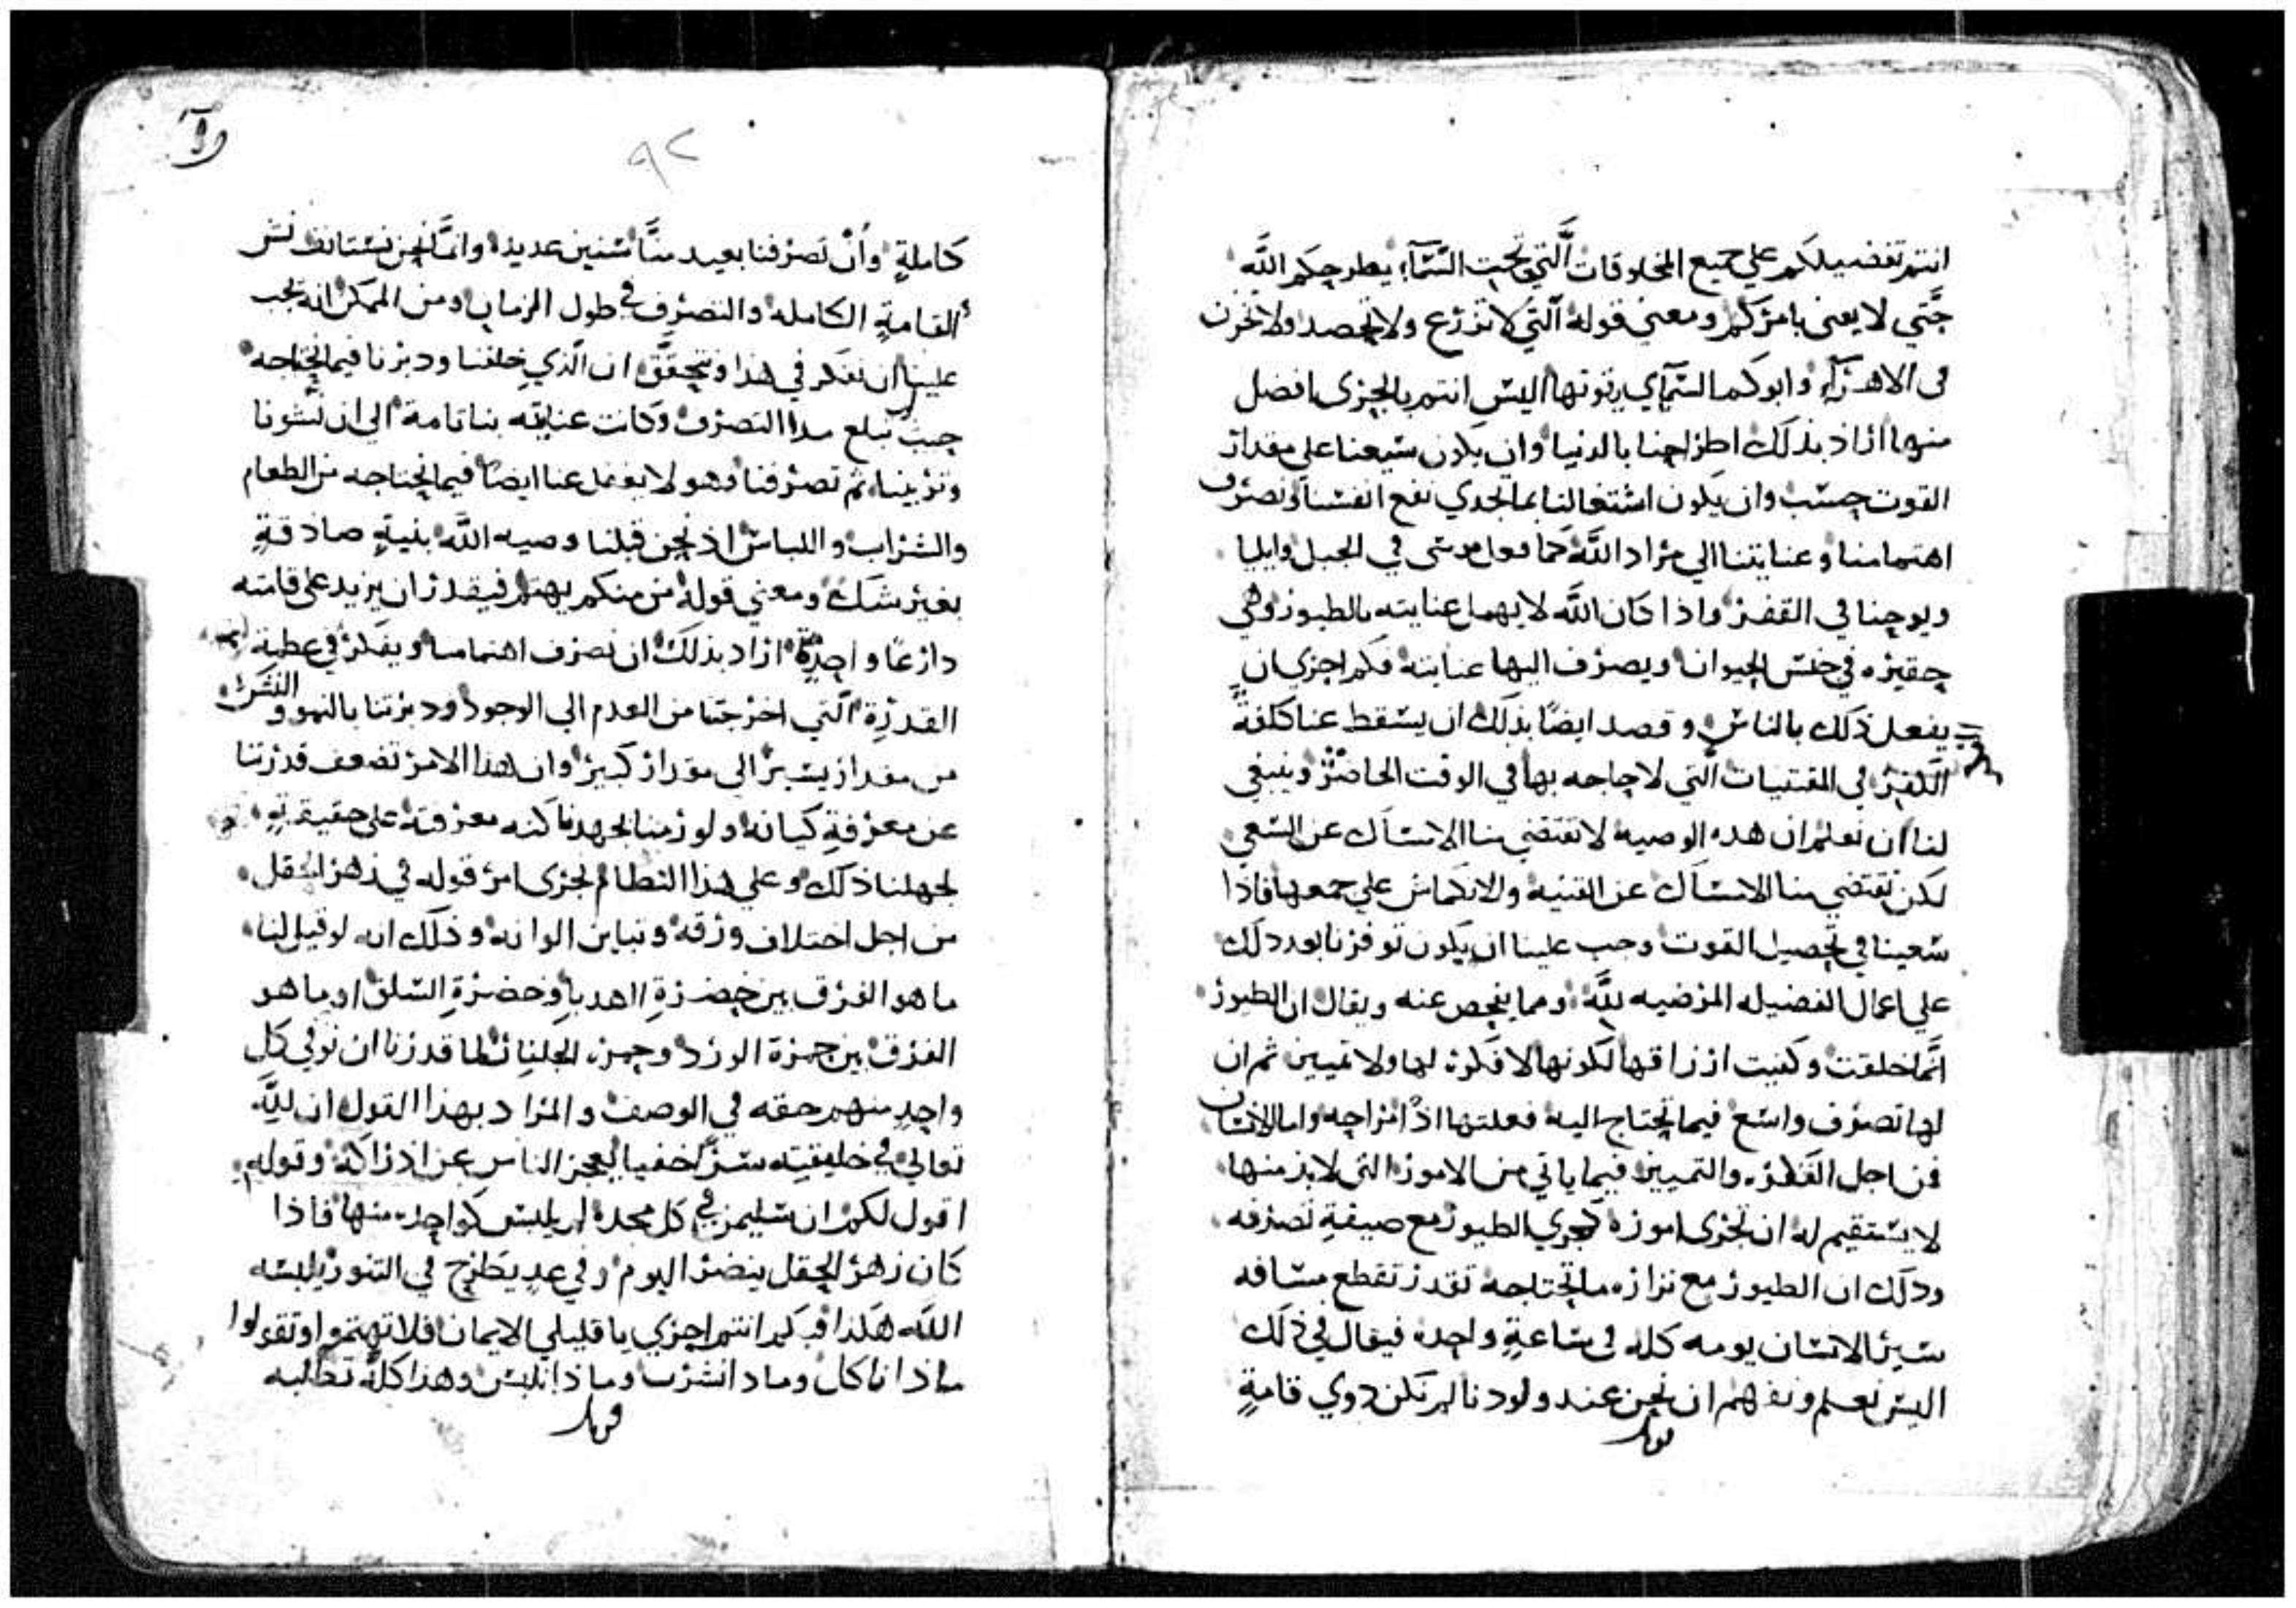 انتم تفضيلكم علي جميع المخلوقات الَّتي تحت السَّمآء يطرحكم اللَّه
حَتَّي لا يعني بامركم ومعني قوله الَّتي لا تزرع ولا تحصد ولا تخزن
في الاهرآء وابوكم السَّمآي يقوتها اليس انتم بالحري افضل
منها اراد بذلك اطراحنا بالدنيا وان يكون سعينا علي مقدار
القوت حسب وان يكون اشتغالنا بما يجدي نفع انفسنا ونصرف
اهتمامنا وعنايتنا الي مراد اللَّه كما فعل موسي في الجبل وايليا
ويوحنا في القفر واذا كان اللَّه لا يهمل عنايته بالطيور وهي
حقيره في جنس الحيوان ويصرف اليها عنايته فكم احري ان
يفعل ذلك بالناس وقصد ايضًا بذلك ان يسقط عنا كلفة
في المقتنيات الَّتي لا حاجه بها في الوقت الحاضر وينبغي
لنا ان نعلم ان هذه الوصيه لا تقتضي منا الامساك عن السَّعي
لكن تقتضي منا الامساك عن القنيه والانكماش علي جمعها فاذا
سعينا في تحصيل القوت وجب علينا ان يكون توفرنا بعد ذلك
علي اعمال الفضيله المرضيه للَّه ومما يفحص عنه ويقال ان الطيور
انَّما خلقت وكفيت ارزاقها لكونها لا فكره لها ولا تمييز ثم ان
لها تصرف واسع فيما تحتاج اليه فعلتها اذًا مزاحه واما الانسان
فمن اجل الفكره والتمييز فيما ياتي من الامور التي لا بد منها
لا يستقيم له ان تجري اموره كجري الطيور مع صيغة تصرفه
وذلك ان الطيور مع نزاره ما تحتاجه تقدر تقطع مسافه
سير الانسان يومه كله في ساعةٍ واحده فيقال في ذلك
اليس نعلم ونفهم ان نحن عند ولودنا لم نكن ذوي قامةٍ
٩٢
كاملةٍ وأنْ تصرفنا بعيد منَّا سنين عديده وانَّما نحن نستانف نشو
القامةِ الكامله والتصرف في طول الزمان ومن الممكن انه يجب
علينا ان نفكر في هذا ونتحقَّق ان الَّذي خلقنا ودبرنا فيما نحتاجه
حيث نبلع مدا التصرف وكانت عنايته بنا تامة الي ان نشونا
وتربينا ثم تصرفنا وهو لا يغفل عنا ايضًا فيما نحتاجه من الطعام
والشراب واللباس اذ نحن قبلنا وصيه اللَّه بنيةٍ صادقةٍ
بغير شك ومعني قوله من منكم يهتم فيقدر ان يزيد علي قامته
ذراعًا واحدةً اراد بذلك ان نصرف اهتمامنا ويفكر في عظمة
القدرة الَّتي اخرجتنا من العدم الي الوجود ودبرتنا بالنمو والنشو
من مقدار يسير الي مقدار كبير وان هذا الامر تضعف قدرتنا
عن معرفةِ كيانه ولو رمنا بجهدنا كنه معرفته علي حقيقته
لجهلنا ذلك وعلي هذا النظام يجري امر قوله في زهر الحقل
من اجل اختلاف ورقه وتباين الوانه وذلك انه لو قيل لنا
ما هو الفرق بين خضرةِ الهدبا وخضرةِ السلق او ما هو
الفرق بين حمرة الورد وحمره الجلنار لما قدرنا ان نوفي كل
واحدٍ منهم حقه في الوصف والمراد بهذا القول ان للَّه
تعالي في خليقته سرًّا خفيا ليعجز الناس عن ادراكه وقوله
اقول لكم ان سليمن في كل مجده لم يلبس كواحده منها فاذا
كان زهر الحقل ينضر اليوم وفي غدٍ يطرح في التنور يلبسه
اللَّه هكذا فبكم انتم احري يا قليلي الايمان فلا تهتموا وتقولوا
ماذا ناكل وماذا نشرب وماذا نلبس وهذا كلَّه تطلبه